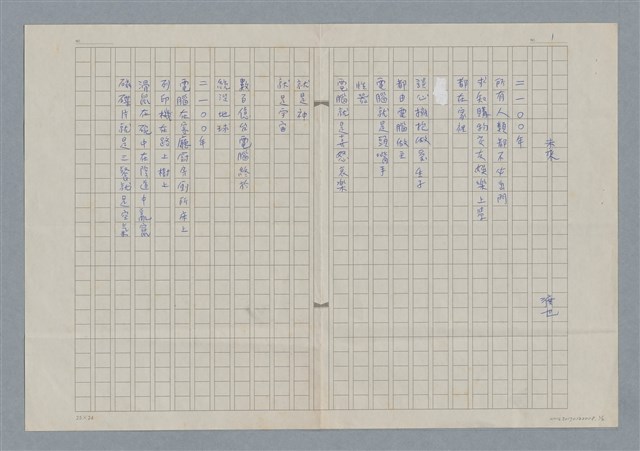 1
未來
渡也
二一〇〇年
所有人類都不必出門
求知購物交友娛樂上學
都在家裡
談心擁抱做愛生子
都由電腦做主
電腦就是頭嘴手
性器
電腦就是喜怒哀樂
就是神
就是宇宙
數百億台電腦終於
統治地球
二一〇〇年
電腦在客廳廚房廁所床上
列印機在路上樹上
滑鼠在碗中在隧道中亂竄
磁碟片就是一餐就是空氣